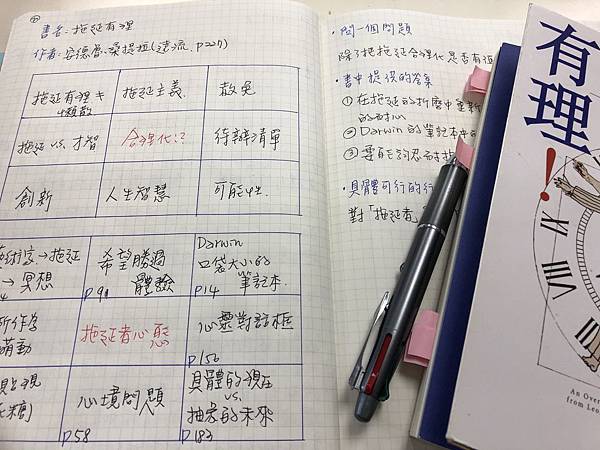 書名：拖延有理
作者：安德魯．桑提拉(遠流. P227)
拖延有理≠懶散
拖延主義
赦免
拖延 vs. 才智
合理化!?
待辦清單
創新
人生智慧
可能性
→拖延
→冥想
希望勝過體驗
P91
Darwin
口袋大小的筆記本.
P14
所作為
萌動
拖延者心態
心靈對話框
P156
心境問題
P58
具體的現在
vs.
抽象的未來
P183
・問一個問題
除了把拖延合理化是否有
・書中提供的答案
①在拖延的折磨中重新
②Darwin的筆記本中的
③要能夠忍耐
・具體可行的行
對「拖延者」
有理!
XI
VIII
VII
An Over
from Leo